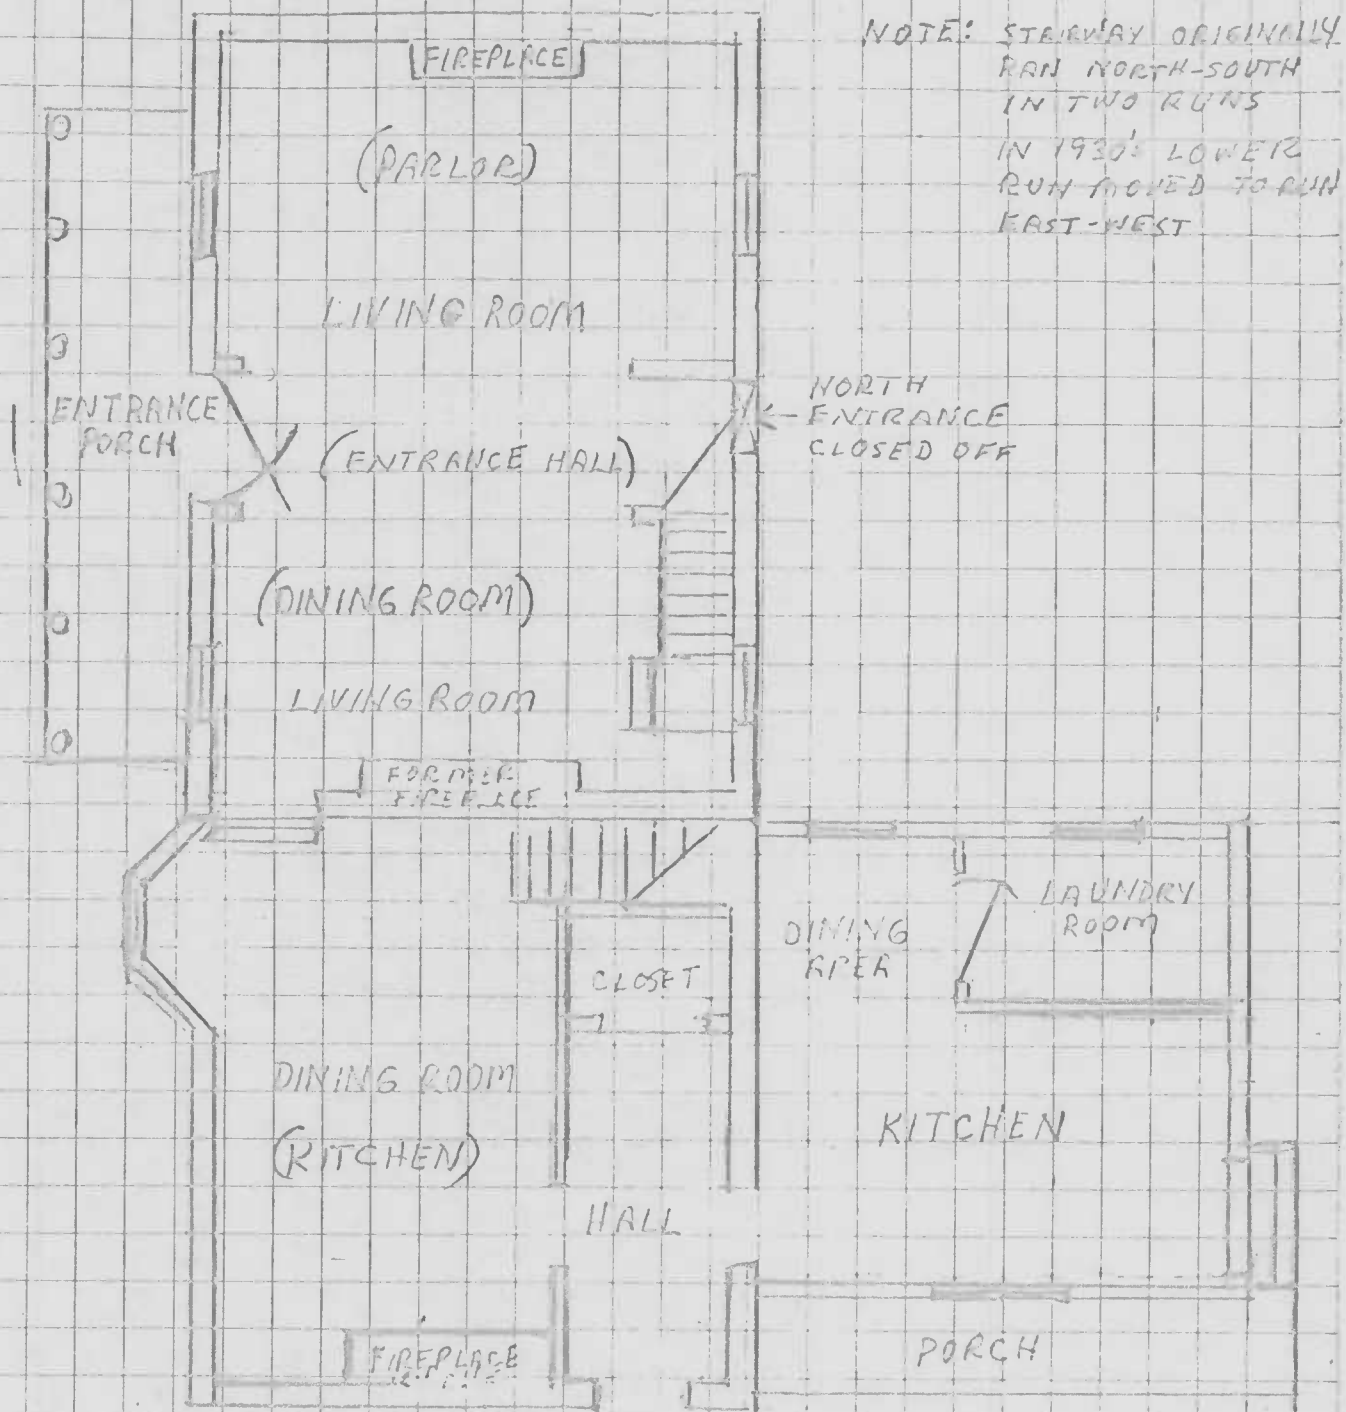 NOTE: STAIRWAY ORIGINALLY
RAN NORTH-SOUTH
IN TWO RUNS
IN 1930's LOWER
RUN MOVED TO RUN
EAST-WEST
FIREPLACE
(PARLOR)
LIVING ROOM
ENTRANCE
PORCH
(ENTRANCE HALL)
NORTH
ENTRANCE
CLOSED OFF
(DINING ROOM)
LIVING ROOM
FORMER
FIREPLACE
DINING
AREA
LAUNDRY
ROOM
CLOSET
DINING ROOM
(KITCHEN)
KITCHEN
HALL
FIREPLACE
PORCH